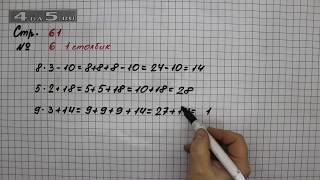 4 на 5.ru
Стр. 61
№ 6 1 столбик
8 · 3 - 10 = 8 + 8 + 8 - 10 = 24 - 10 = 14
5 · 2 + 18 = 5 + 5 + 18 = 10 + 18 = 28
9 · 3 + 14 = 9 + 9 + 9 + 14 = 27 + 1